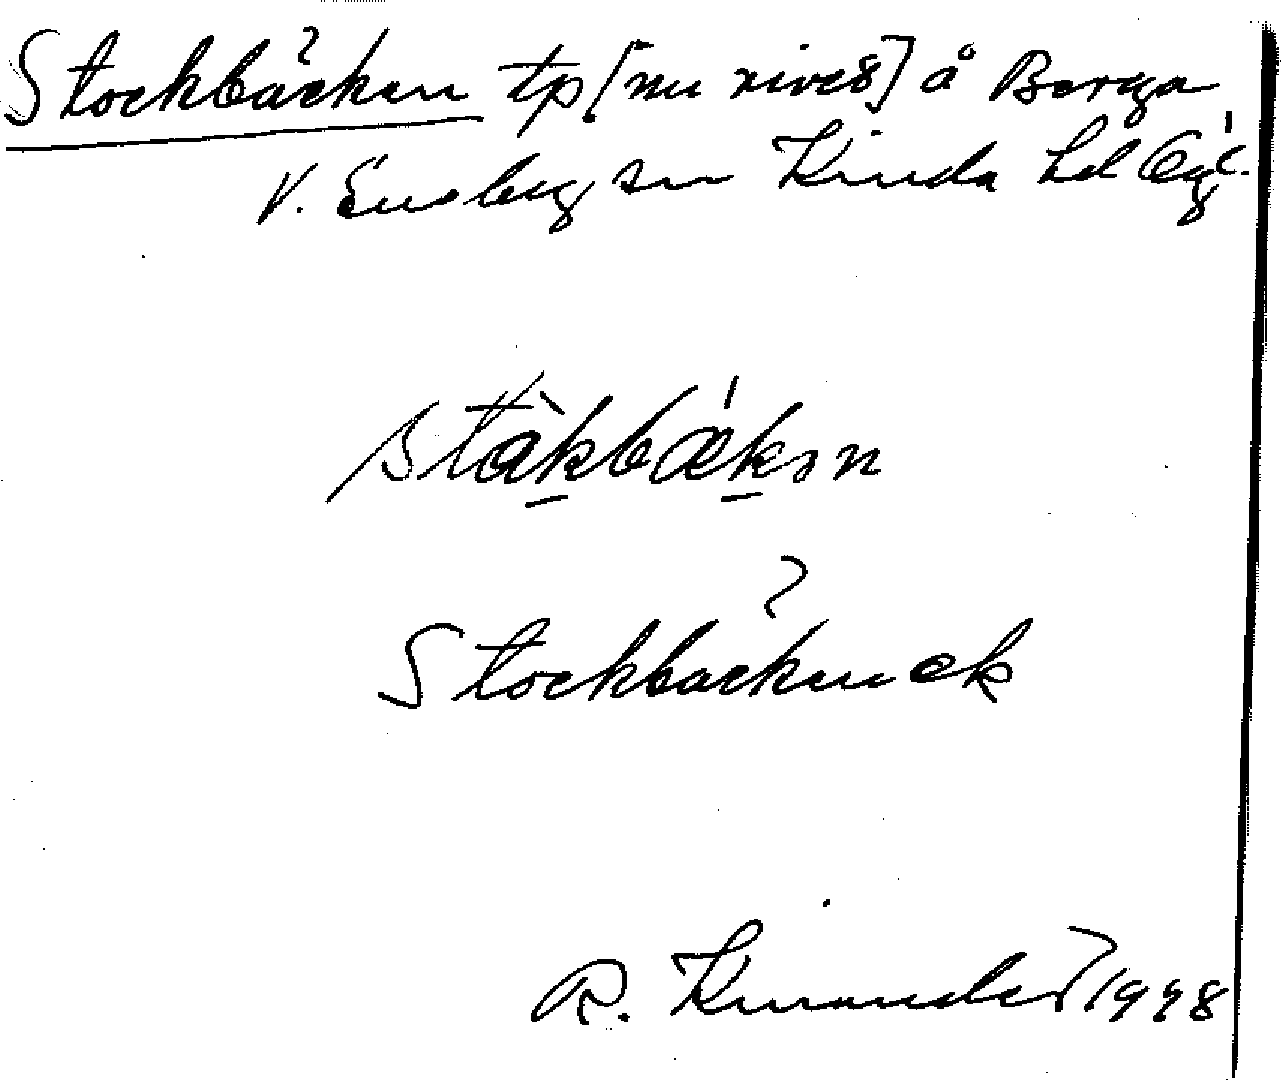 Stockbäcken tp [nu rivet] å Berga
V. Eneby sn Kinda hd Ögl.
ståkbækən
Stockbäcken ek
R. Kinander 1948